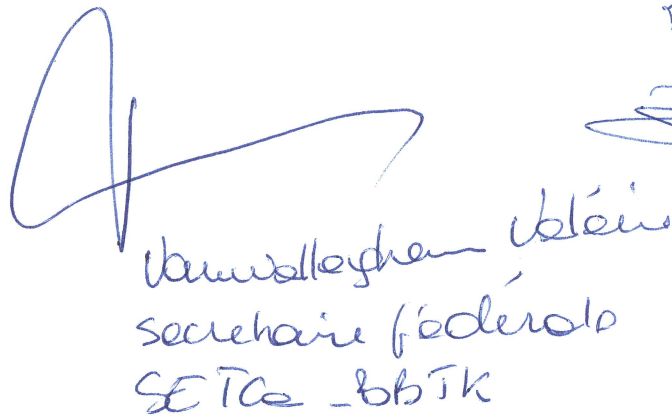 Vanwalleghem Valérie
secrétaire fédérale
SETCa - BBTK